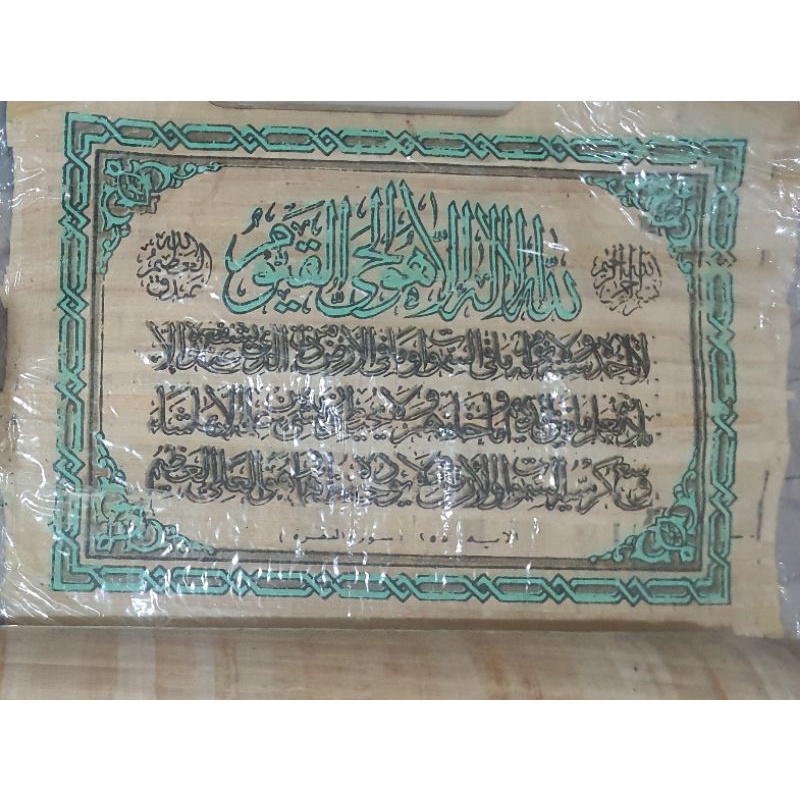 بسم الله الرحمن الرحيم
الله لا إله إلا هو الحي القيوم
صدق الله العظيم
لا تأخذه سنة ولا نوم له ما في السموات وما في الأرض من ذا الذي يشفع عنده إلا
بإذنه يعلم ما بين أيديهم وما خلفهم ولا يحيطون بشيء من علمه إلا بما شاء
وسع كرسيه السموات والأرض ولا يؤده حفظهما وهو العلي العظيم
الآية ٢٥٥ ( سورة البقرة )